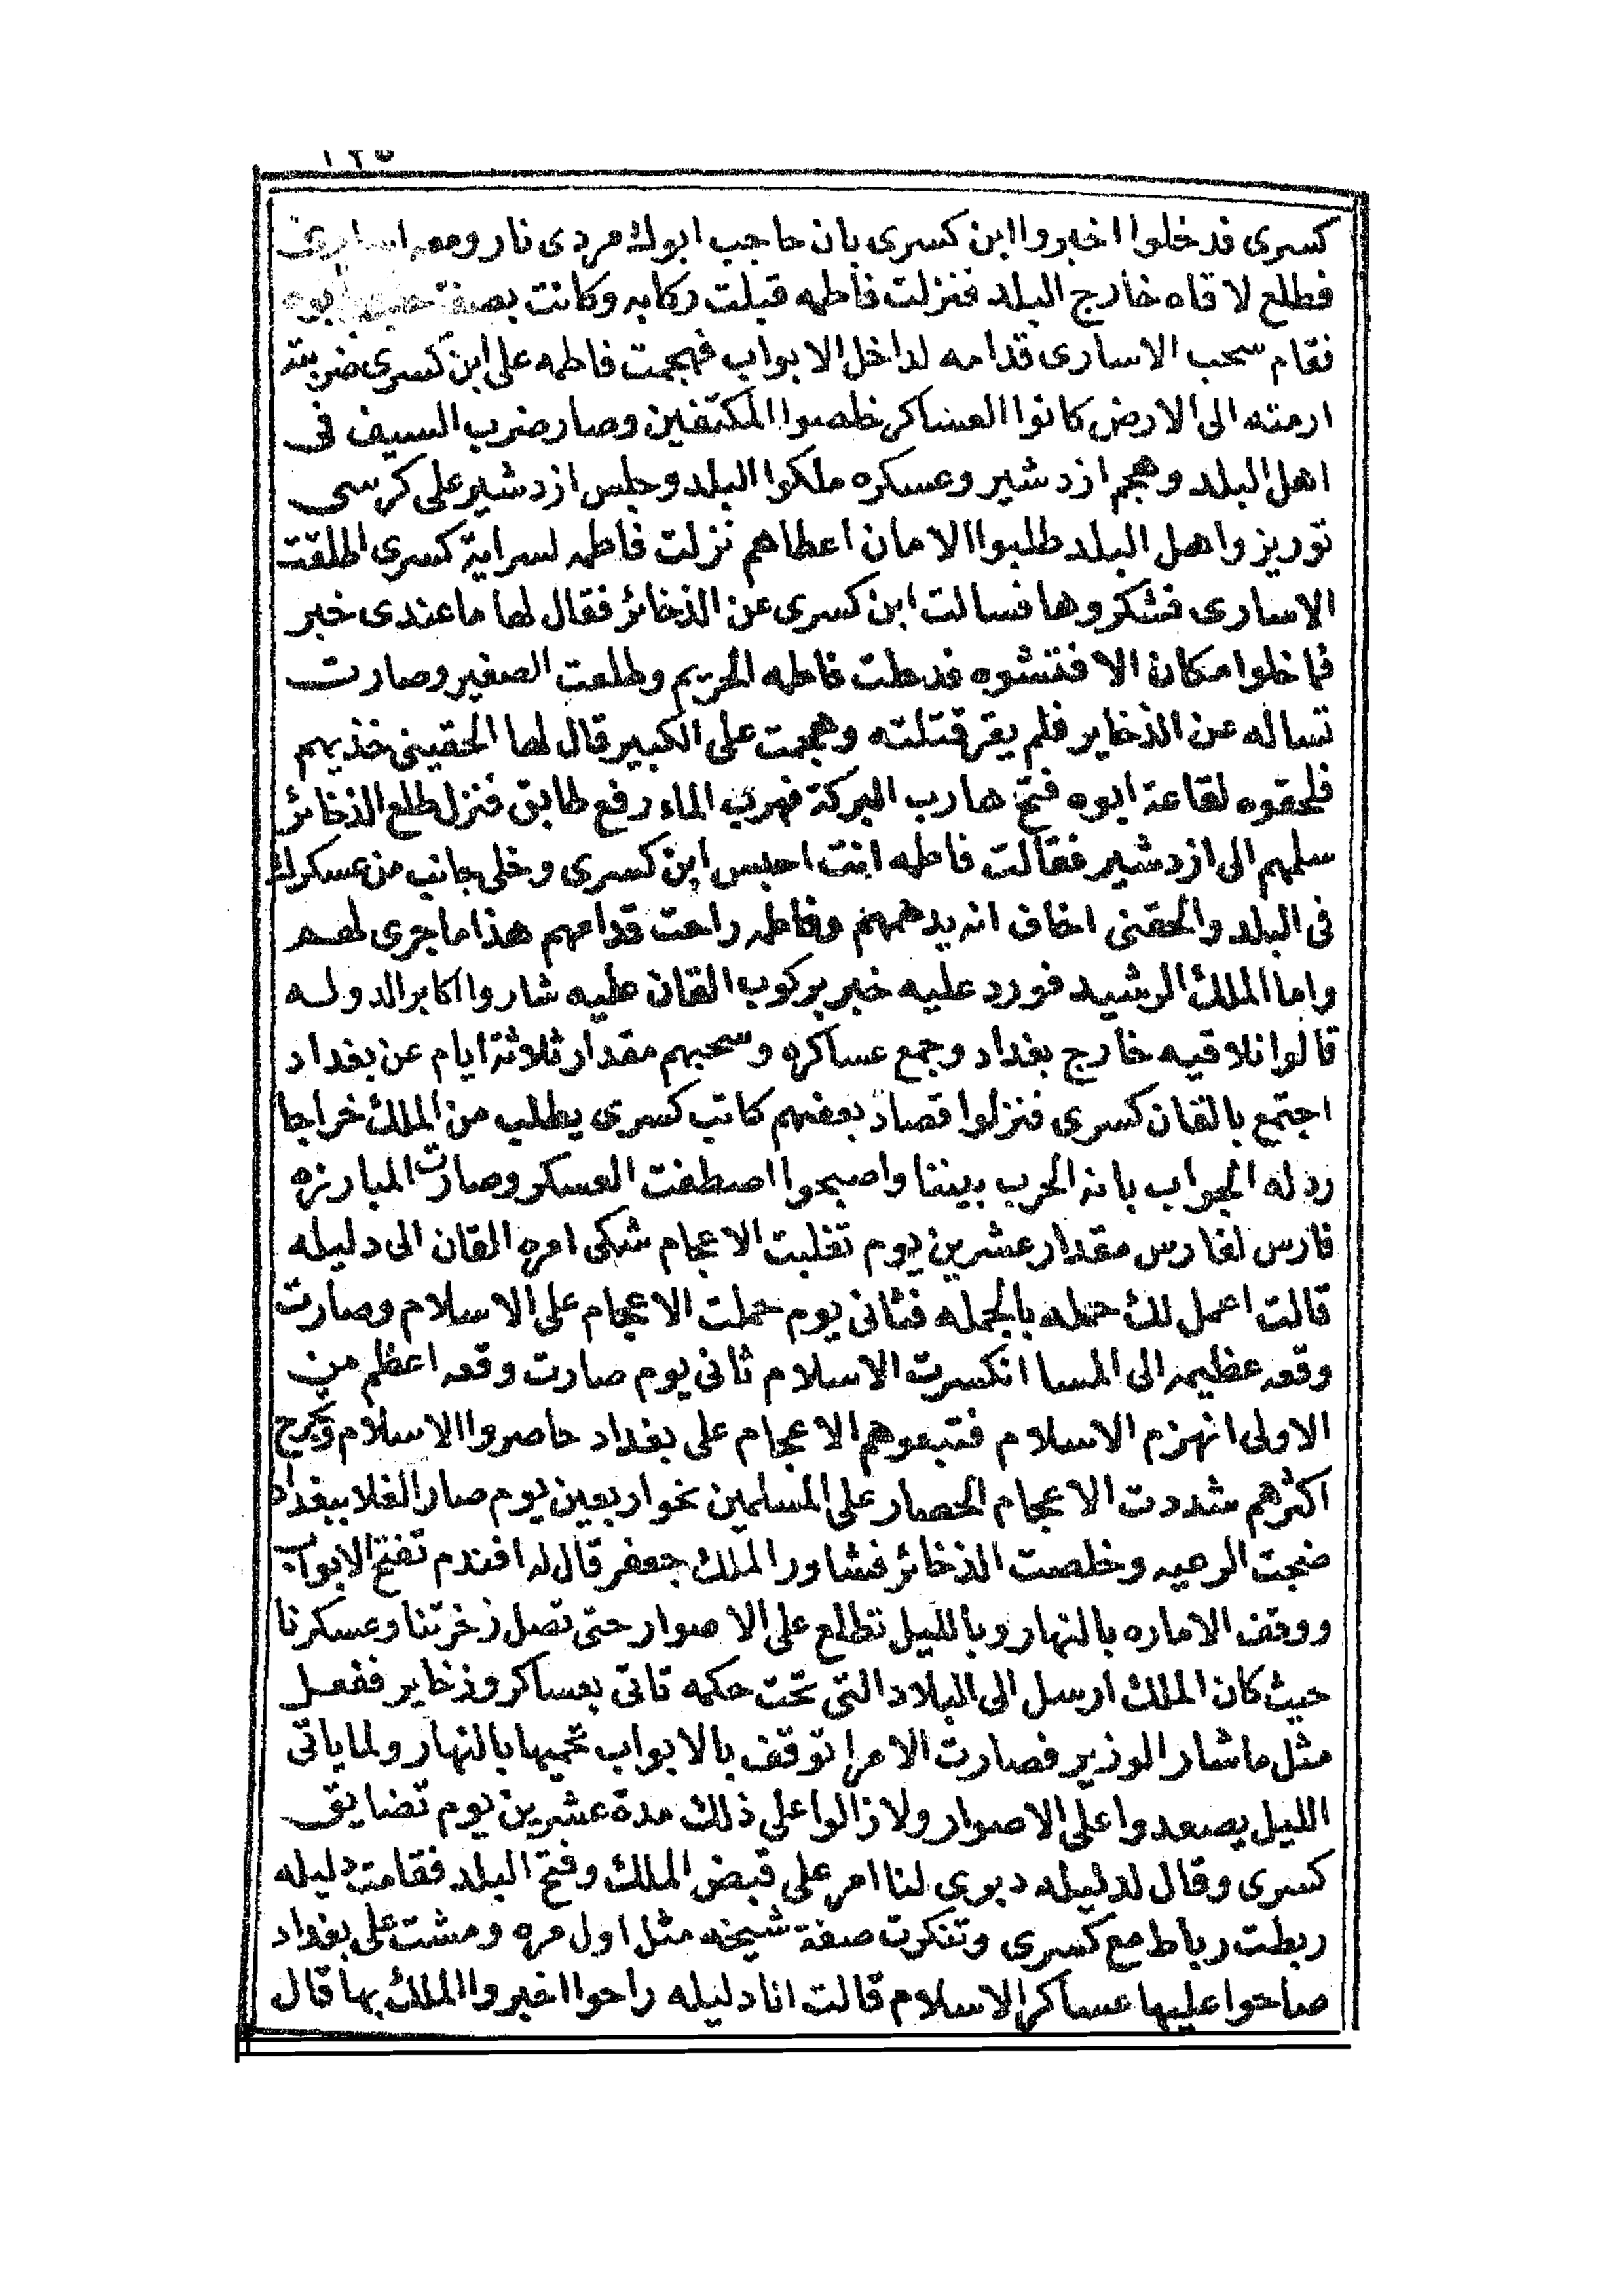 ١٢٥
كسرى فدخلوا اخبروا ابن كسرى بان حاجب ابوك مردى نار ومعه اسارى
فطلع لاقاه خارج البلد فنزلت فاطمه قبلت ركابه وكانت بصفة ابوه
فقام سحب الاسارى قدامه لداخل الابواب فهجمت فاطمه على ابن كسرى ضربته
ارمته الى الارض كانوا العساكر خلصوا المكتفين وصار ضرب السيف فى
اهل البلد وهجم ازدشير وعسكره ملكوا البلد وجلس ازدشير على كرسى
توريز واهل البلد طلبوا الامان اعطاهم نزلت فاطمه لسراية كسرى اطلقت
الاسارى فشكروها فسالت ابن كسرى عن الذخائر فقال لها ما عندى خبر
فما خلوا مكان الا فتشوه فدخلت فاطمه الحريم وطلعت الصغير وصارت
تساله عن الذخاير فلم يقر قتلته وهجمت على الكبير قال لها الحقينى خذيهم
فلحقوه لقاعة ابوه فتح هارب البركة فهرب الماء رفع طابق فنزل طلع الذخائر
سلمهم الى ازدشير فقالت فاطمه انت احبس ابن كسرى وخلى جانب من عسكرك
فى البلد والحقنى اخاف انه يدهمهم وفاطمه راحت قدامهم هذا ما جرى لهم
واما الملك الرشيد فورد عليه خبر بركوب القان عليه شاروا اكابر الدوله
قالوا نلاقيه خارج بغداد وجمع عساكره وسحبهم مقدار ثلاثة ايام عن بغداد
اجتمع بالقان كسرى فنزلوا قصاد بعضهم كاتب كسرى يطلب من الملك خراجا
رد له الجواب بانه الحرب بيننا واصبحوا اصطفت العسكر وصارت المبارزه
فارس لفارس مقدار عشرين يوم تغلبت الاعجام شكى امره القان الى دليله
قالت اعمل لك حمله بالجمله فثانى يوم حملت الاعجام على الاسلام وصارت
وقعه عظيمه الى المسا انكسرت الاسلام ثانى يوم صارت وقعه اعظم من
الاولى انهزم الاسلام فتبعوهم الاعجام على بغداد حاصروا الاسلام وتجرح
اكثرهم شددت الاعجام الحصار على المسلمين نحو اربعين يوم صار الغلا ببغداد
ضجت الرعيه وخلصت الذخائر فشاور الملك جعفر قال له افندم تفتح الابواب
ووقف الاماره بالنهار وبالليل تطلع على الاصوار حتى تصل ذخرتنا وعسكرنا
حيث كان الملك ارسل الى البلاد التى تحت حكمه تاتى بعساكر وذخاير ففعل
مثل ما شار الوزير فصارت الامرا توقف بالابواب تحميها بالنهار ولما ياتى
الليل يصعدوا على الاصوار ولا زالوا على ذلك مدة عشرين يوم تضايق
كسرى وقال لدليله دبرى لنا امر على قبض الملك وفتح البلد فقامت دليله
ربطت رباط مع كسرى وتنكرت صفة شيخه مثل اول مره ومشت على بغداد
صاحوا عليها عساكر الاسلام قالت انا دليله راحوا اخبروا الملك بها قال